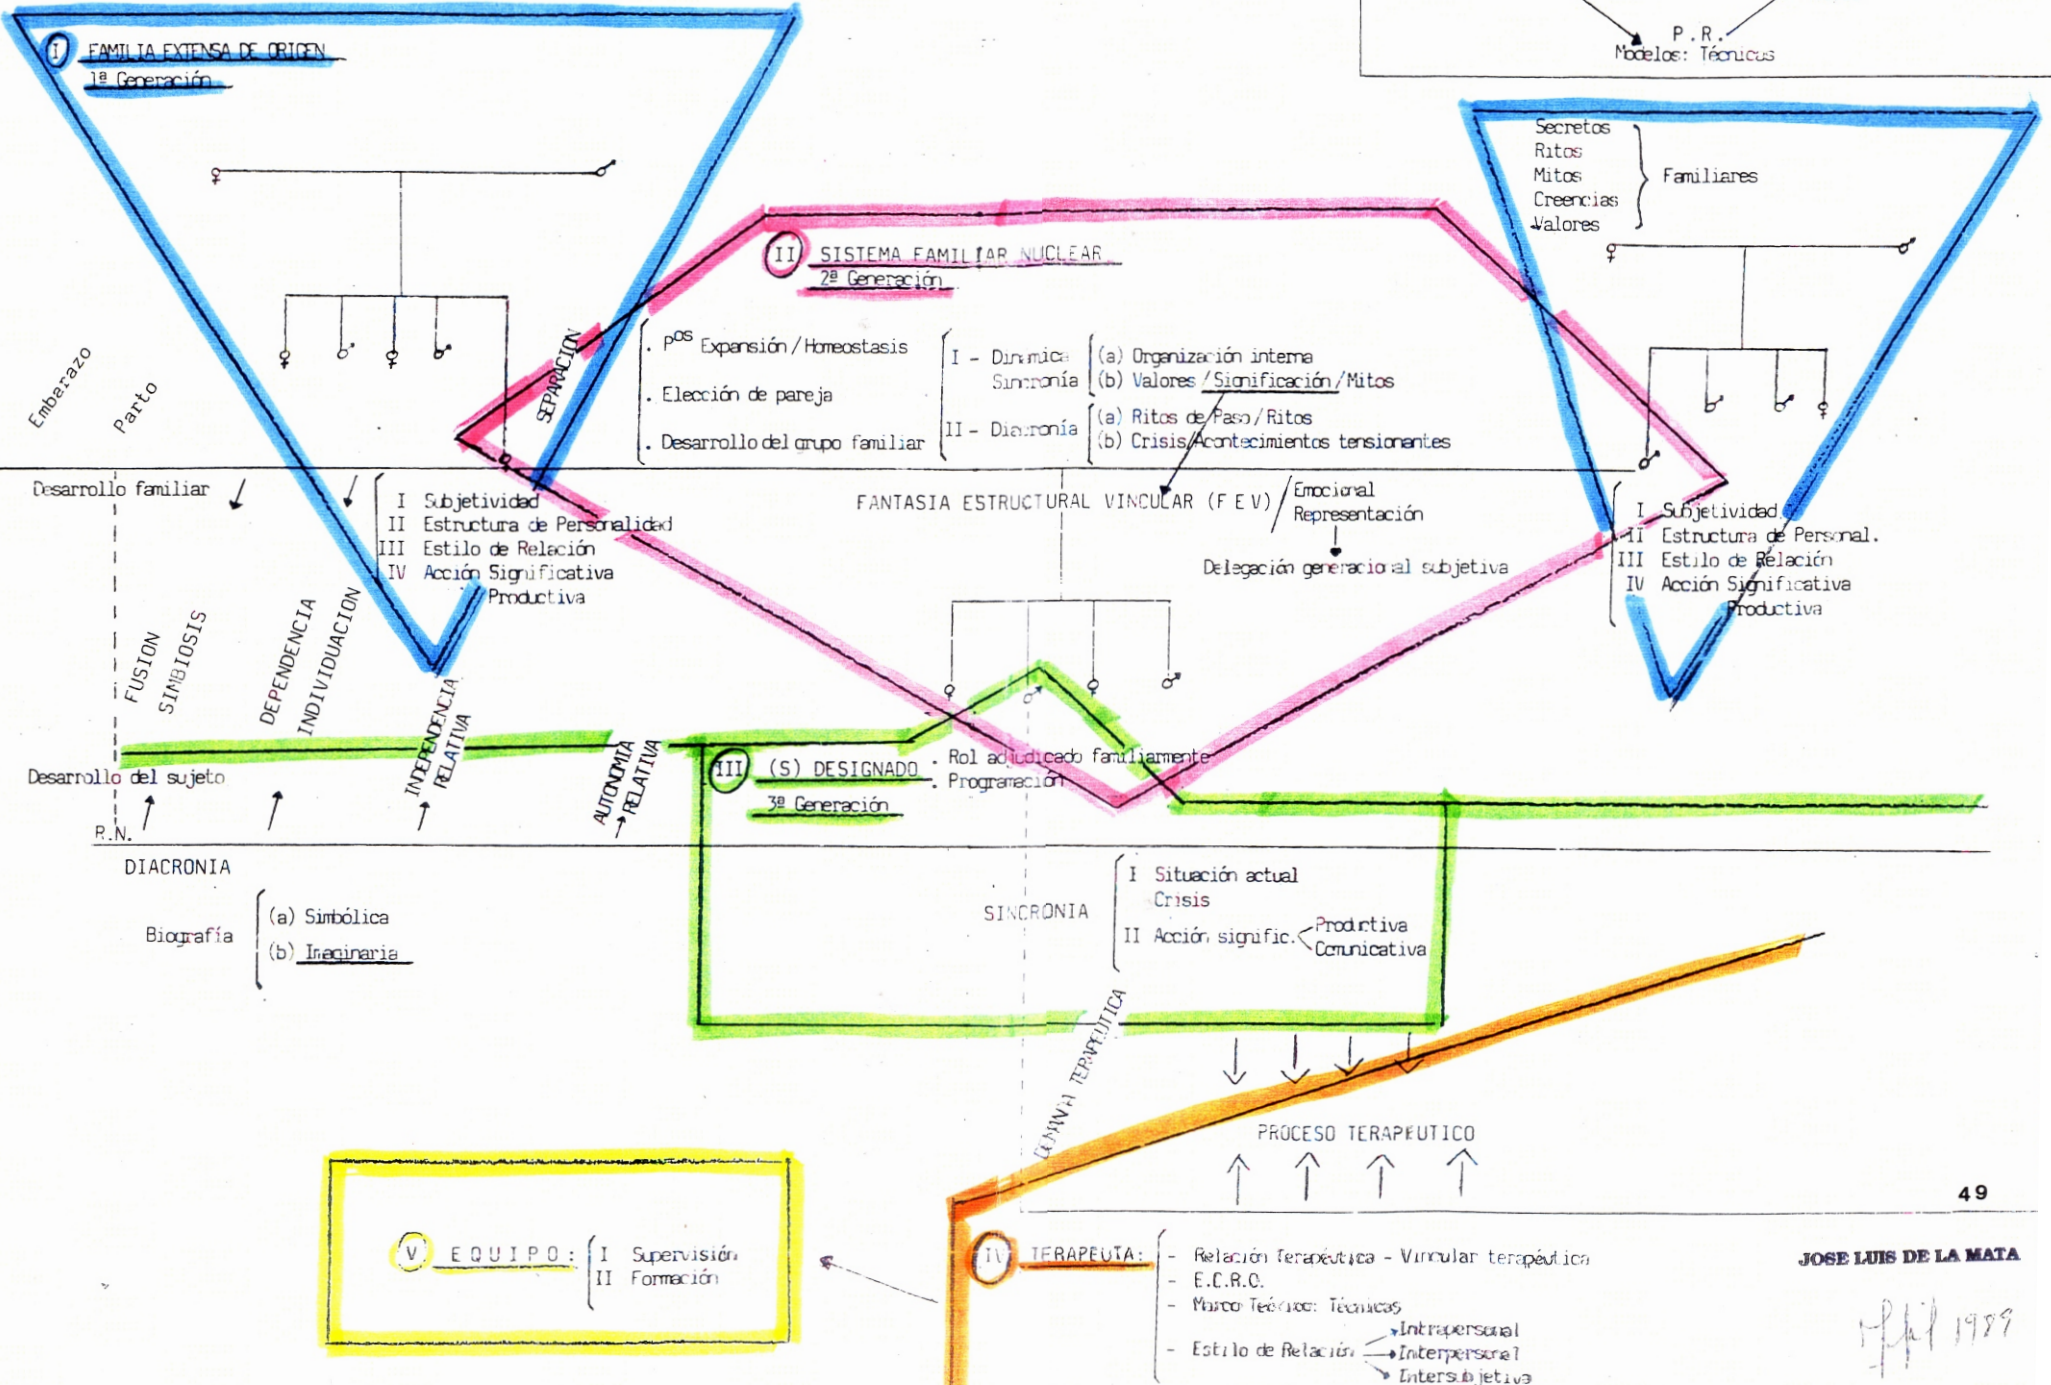 P.R.
Modelos: Técnicas
I FAMILIA EXTENSA DE ORIGEN
1ª Generación
Secretos
Ritos
Mitos
Creencias
Valores
Familiares
II SISTEMA FAMILIAR NUCLEAR
2ª Generación
SEPARACION
. pos Expansión / Homeostasis
. Elección de pareja
. Desarrollo del grupo familiar
I - Dinámica
Sincronía
(a) Organización interna
(b) Valores / Significación / Mitos
II - Diacronía
(a) Ritos de Paso / Ritos
(b) Crisis/Acontecimientos tensionantes
Embarazo
Parto
Desarrollo familiar
I Subjetividad
II Estructura de Personalidad
III Estilo de Relación
IV Acción Significativa
Productiva
FANTASIA ESTRUCTURAL VINCULAR (F E V)
Emocional
Representación
Delegación generacional subjetiva
I Subjetividad
II Estructura de Personal.
III Estilo de Relación
IV Acción Significativa
Productiva
FUSION
SIMBIOSIS
DEPENDENCIA
INDIVIDUACION
INDEPENDENCIA
RELATIVA
AUTONOMIA
RELATIVA
Desarrollo del sujeto
R.N.
III (S) DESIGNADO
3ª Generación
. Rol adjudicado familiarmente
. Programación
DIACRONIA
Biografía
(a) Simbólica
(b) Imaginaria
SINCRONIA
I Situación actual
Crisis
II Acción signific.
Productiva
Comunicativa
DEMANDA TERAPEUTICA
PROCESO TERAPEUTICO
49
V EQUIPO:
I Supervisión
II Formación
IV TERAPEUTA:
- Relación Terapéutica - Vincular terapéutica
- E.C.R.O.
- Marco Teórico: Técnicas
- Estilo de Relación
Intrapersonal
Interpersonal
Intersubjetiva
JOSE LUIS DE LA MATA
1989